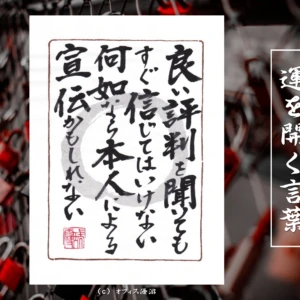 良い評判を聞いても
すぐ信じてはいけない
何如なら本人による
宣伝かもしれない
運を開く言葉
(C) オフィス海沼